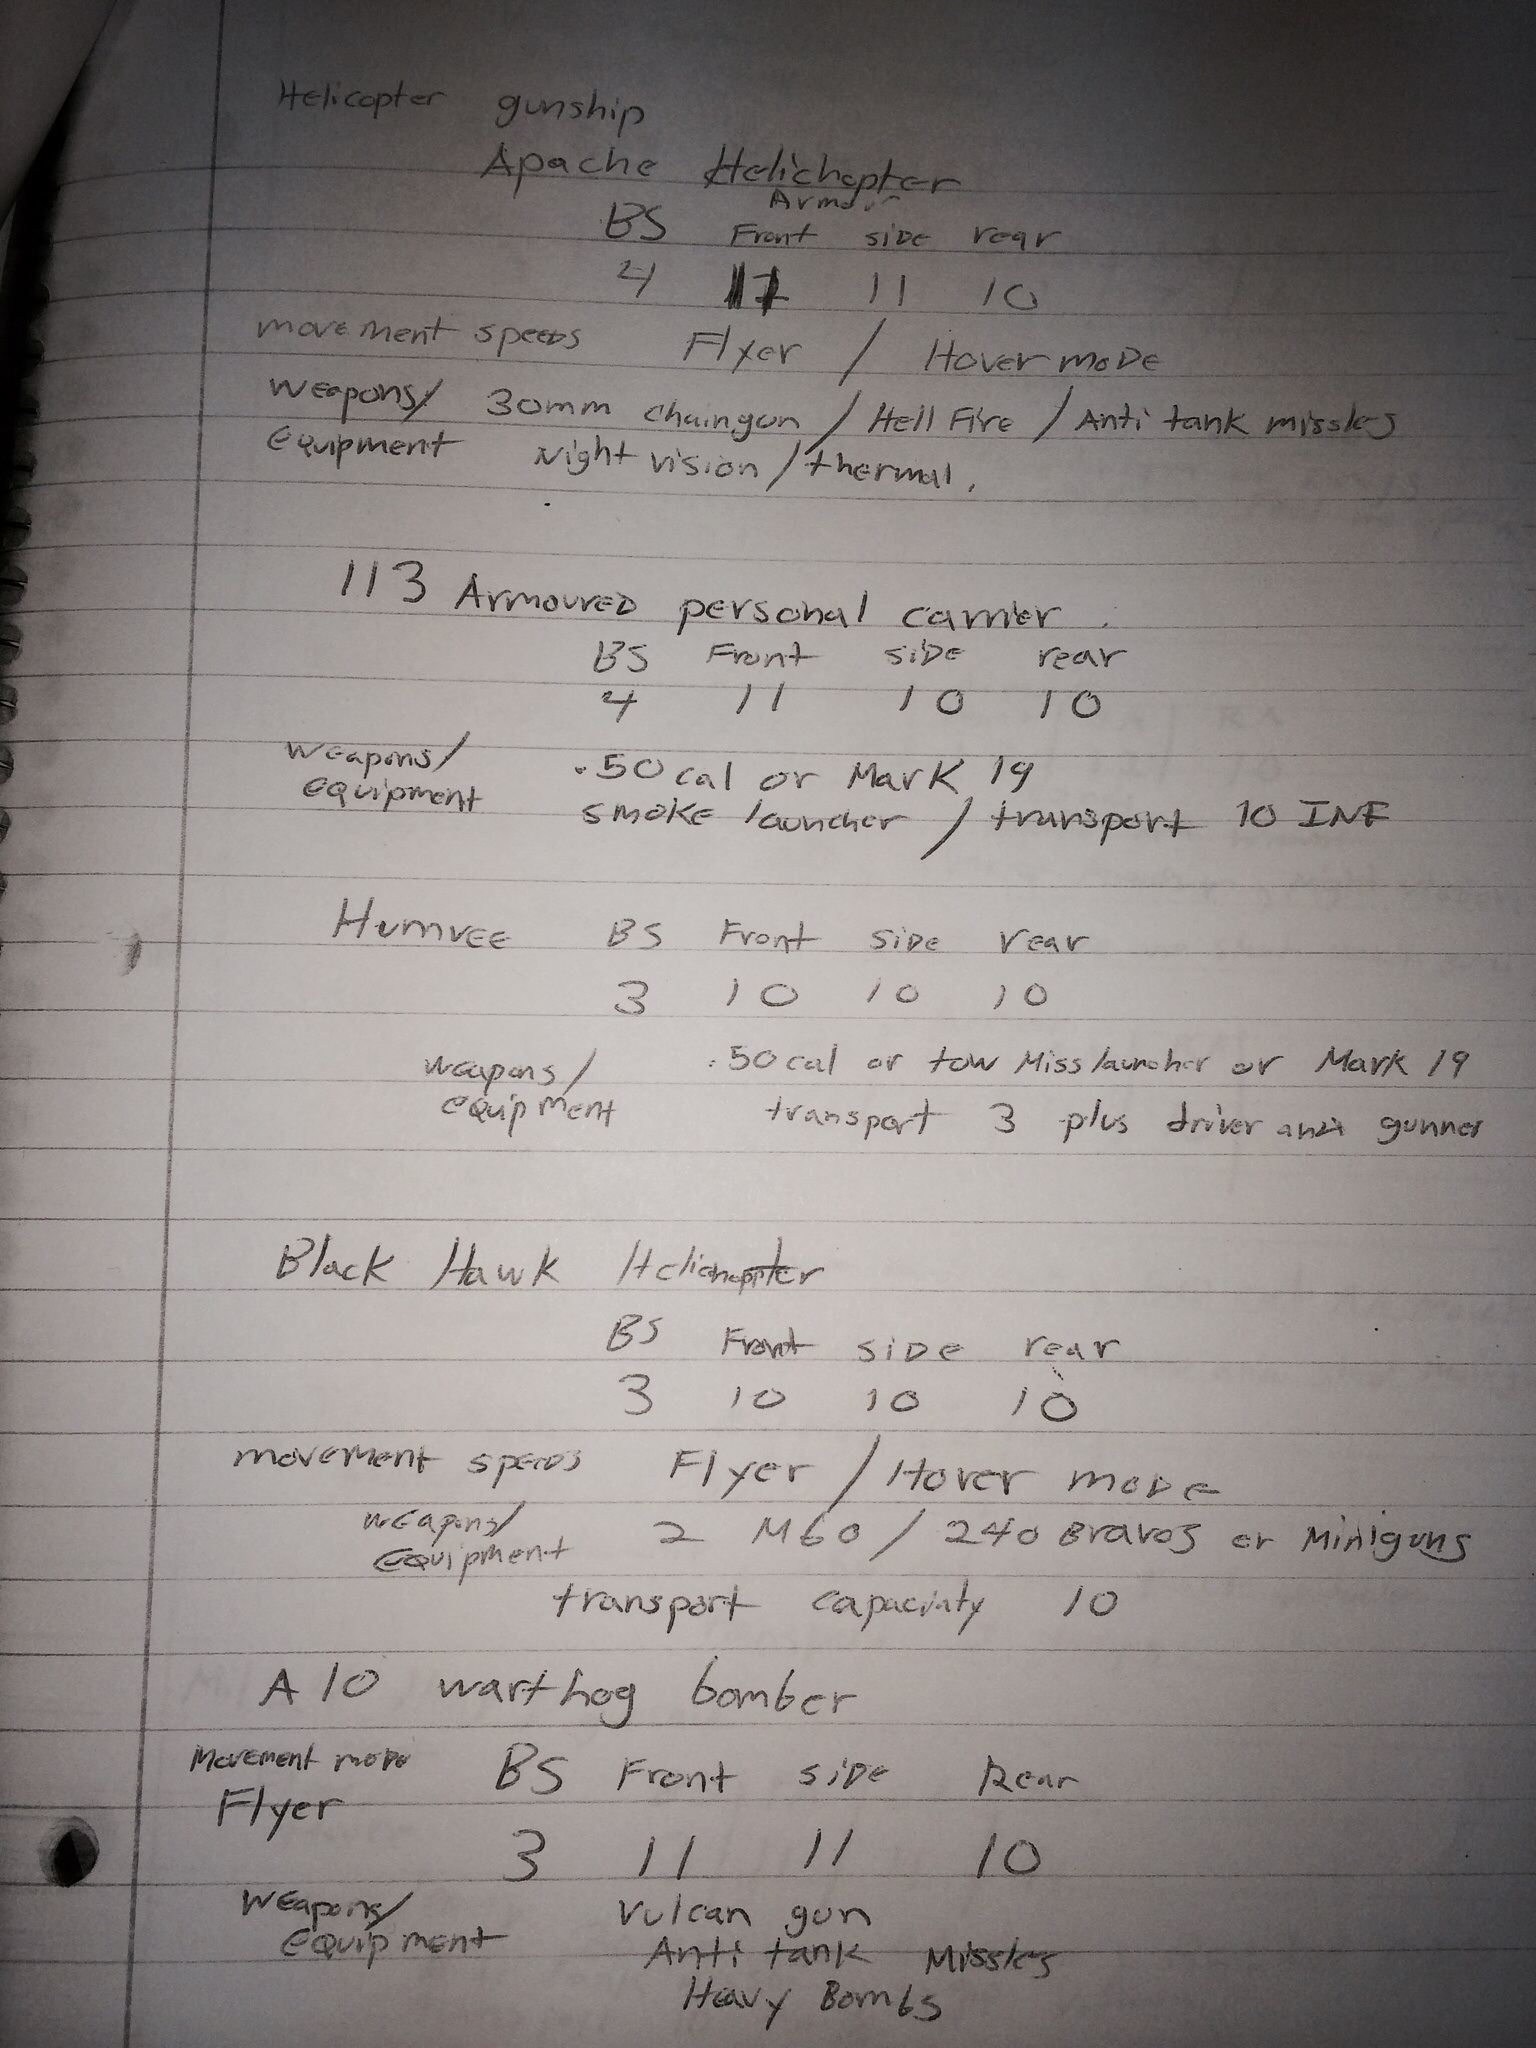 Helicopter gunship
Apache Helichopter
Armour
BS Front side rear
4 11 10
movement speeds Flyer / Hover mode
Weapons/ 30mm chaingun / Hell Fire / Anti tank missles
Equipment Night vision / thermal.
113 Armoured personal carrier.
BS Front side rear
4 11 10 10
Weapons/ .50 cal or Mark 19
equipment smoke launcher / transport 10 INF
Humvee BS Front side rear
3 10 10 10
weapons/ .50 cal or tow Miss launcher or Mark 19
equipment transport 3 plus driver and gunner
Black Hawk Helichoppter
BS Front side rear
3 10 10 10
movement speeds Flyer / Hover mode
weapons/ 2 M60 / 240 Bravos or Miniguns
equipment
transport capacinty 10
A10 warthog bomber
Movement mode BS Front side Rear
Flyer
3 11 11 10
Weapons/ Vulcan gun
equipment Anti tank Missles
Heavy Bombs